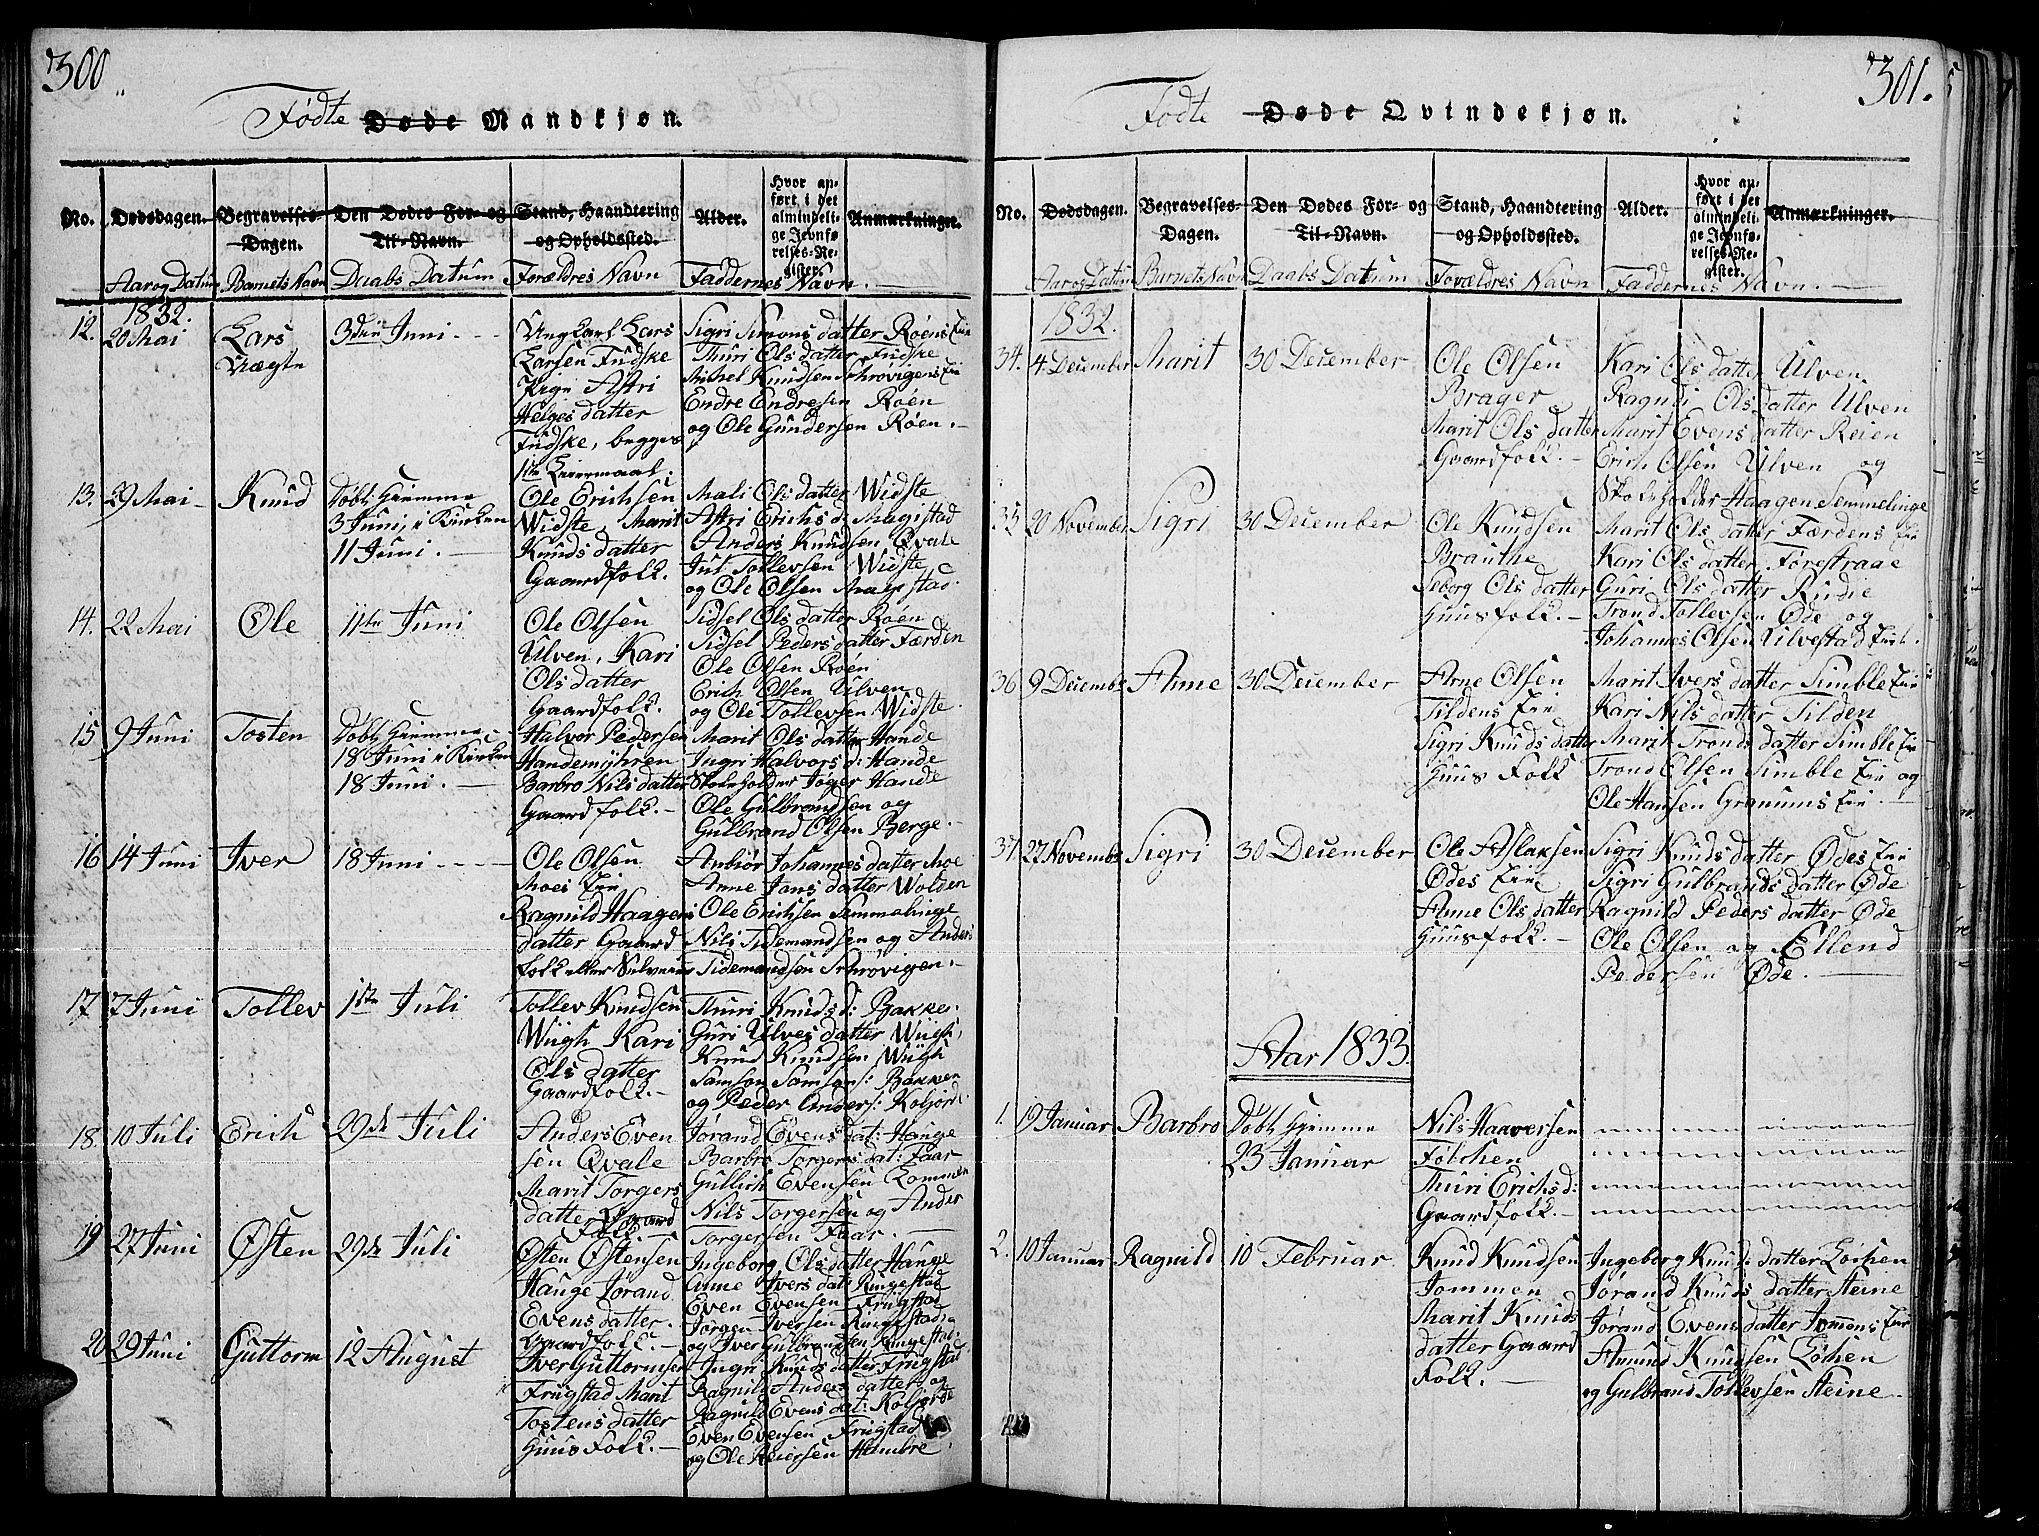 300
Fødte Døde Mandkjøn.
No. Dødsdagen. Begravelses-Dagen. Den Dødes For- og Til-Navn. Stand, Haandtering og Opholdssted. Alder. Hvor anført i det almindelige Jevnførelses-Register. Anmærkninger.
Aar og Datum Barnets Navn Daabs Datum Forældres Navn Faddernes Navn.
1832.
12. 20 Mai Lars 3die Juni
Ungkarl Lars
Larsen Fudske
Pige Astri
Helgesdatter
Fudske, begges
1ste Leiermaal.
Sigri Simonsdatter Røens Eie
Thuri Olsdatter Fudske
Michel Knudsen Schrøvigens Eie
Endre Endresen Røen
og Ole Gundersen Røen.
13. 29 Mai Knud
Døbt Hiemme
3 Juni, i Kirken
11 Juni.
Ole Erichsen
Widste, Marit
Knudsdatter
Gaardfolk.
Mali Olsdatter Widste
Astri Erichsd: Magistad
Anders Knudsen Qvale
Jul Tollevsen Widste
og Ole Olsen Magistad
14. 22 Mai Ole 11te Juni
Ole Olsen
Ulven, Kari
Olsdatter
Gaardfolk.
Sidsel Olsdatter Røen
Sidsel Pedersdatter Færden
Ole Olsen Røen
Erich Olsen Ulven
og Ole Tollevsen Widste.
15 9 Juni Tosten
Døbt Hiemme
18 Juni i Kirken
18 Juni.
Halvor Pedersen
Handemyhren
Barbro Nilsdatter
Gaardfolk.
Marit Olsdatter Hande
Ingri Halvorsd: Hande
Skoleholder Joger Hande
Ole Gulbrandsen og
Gulbrand Olsen Berge.
16 14 Juni Iver 18 Juni
Ole Olsen
Moes Eie
Ragnild Haagens
datter Gaard
folk
Anbiør Johannesdatter Moe
Anne Jansdatter Wolden
Ole Erichsen Semmelinge
Nils Tidemandsen og Anders
Tidemandsen Schrøvigen.
17 7 Juni Tollev 1ste Juli
Tollev Knudsen
Wiigh Kari
Olsdatter
Gaardfolk.
Thuri Knudsd: Bakke
Guri Ulvesdatter Wiigh,
Knud Knudsen Wiigh
Samson Samsons: Bakken
og Peder Anders: Kolsjord.
18. 10 Juli Erich 29de Juli
Anders Even
sen Qvale
Marit Torgers
datter Gaard
Folk
Jørand Evensdat: Hauge
Barbro Torgersdat: Faar
Gullich Evensen Lommen
Nils Torgersen og Ander
Torgersen Faar.
19 27 Juni Østen 29de Juli
Østen Østensen
Hauge Jørand
Evensdatter.
Gaardfolk.
Ingeborg Olsdatter Hauge
Anne Iversdat: Ringestad
Even Evensen Frugstad
Jørgen Iversen Ringestad
og Iver Gulbrandsen Ringestad
20 29 Juni Guttorm 12 August
Iver Guttormsen
Frugstad Marit
Tostensdatter
Huus Folk.
Ingri Knudsdatter Frugstad
Ragnild Andersdatter og
Ragnild Evensdat: Kolsjorde
Even Evensen Frugstad
og Ole Reiersen Hembre.
301.
Fødte Døde Qvindekjøn.
No. Dødsdagen. Begravelses-Dagen. Den Dødes For- og Til-Navn. Stand, Haandtering og Opholdssted. Alder. Hvor anført i det almindelige Jevnførelses-Register. Anmærkninger.
Aar og Datum Barnets Navn Daabs Datum Forældres Navn Faddernes Navn.
1832.
34. 4 December Marit 30 December
Ole Olsen
Brager
Marit Olsdatter
Gaardfolk.
Kari Olsdatter Ulven
Ragndi Olsdatter Ulven
Marit Evensdatter Reien
Erich Olsen Ulven og
Skoleholder Haagen Semmelinge
35 20 November Sigri 30 December
Ole Knudsen
Brauthe
Seborg Olsdatter
Huusfolk.
Marit Olsdatter Færdens Eie
Kari Olsdatter Førestrage
Guri Olsdatter Rudie
Trond Tollevsen Øde og
Johannes Olsen Ulvestad Eie.
36 9 December Anne 30 December
Arne Olsen
Tildens Eie
Sigri Knudsdatter
Huus Folk
Marit Iversdatter Simble Eie
Kari Nilsdatter Tilden
Marit Trondsdatter Simble Eie
Trond Olsen Simble Eie og
Ole Hansen Granums Eie.
37 27 Novembr Sigri 30 December
Ole Aslaksen
Ødes Eie
Anne Olsdatter
Huusfolk.
Sigri Knudsdatter Ødes Eie
Sigri Gulbrandsdatter Øde
Ragnild Pedersdatter Øde
Ole Olsen og Ellend
Pedersen Øde.
Aar 1833.
1. 19 Januar Barbro
Døbt Hjemme
23 Januar
Nils Haaversen
Følchen
Thuri Erichsd:
Gaardfolk.
2. 10 Januar Ragnild 10 Februar
Knud Knudsen
Jommen
Marit Knuds
datter Gaard
Folk.
Ingeborg Knudsdatter Løchen
Jørand Knudsdatter Steine
Jørand Evensdatter Jomens Eie
Amund Knudsen Løchen
og Gulbrand Tollevsen Steine